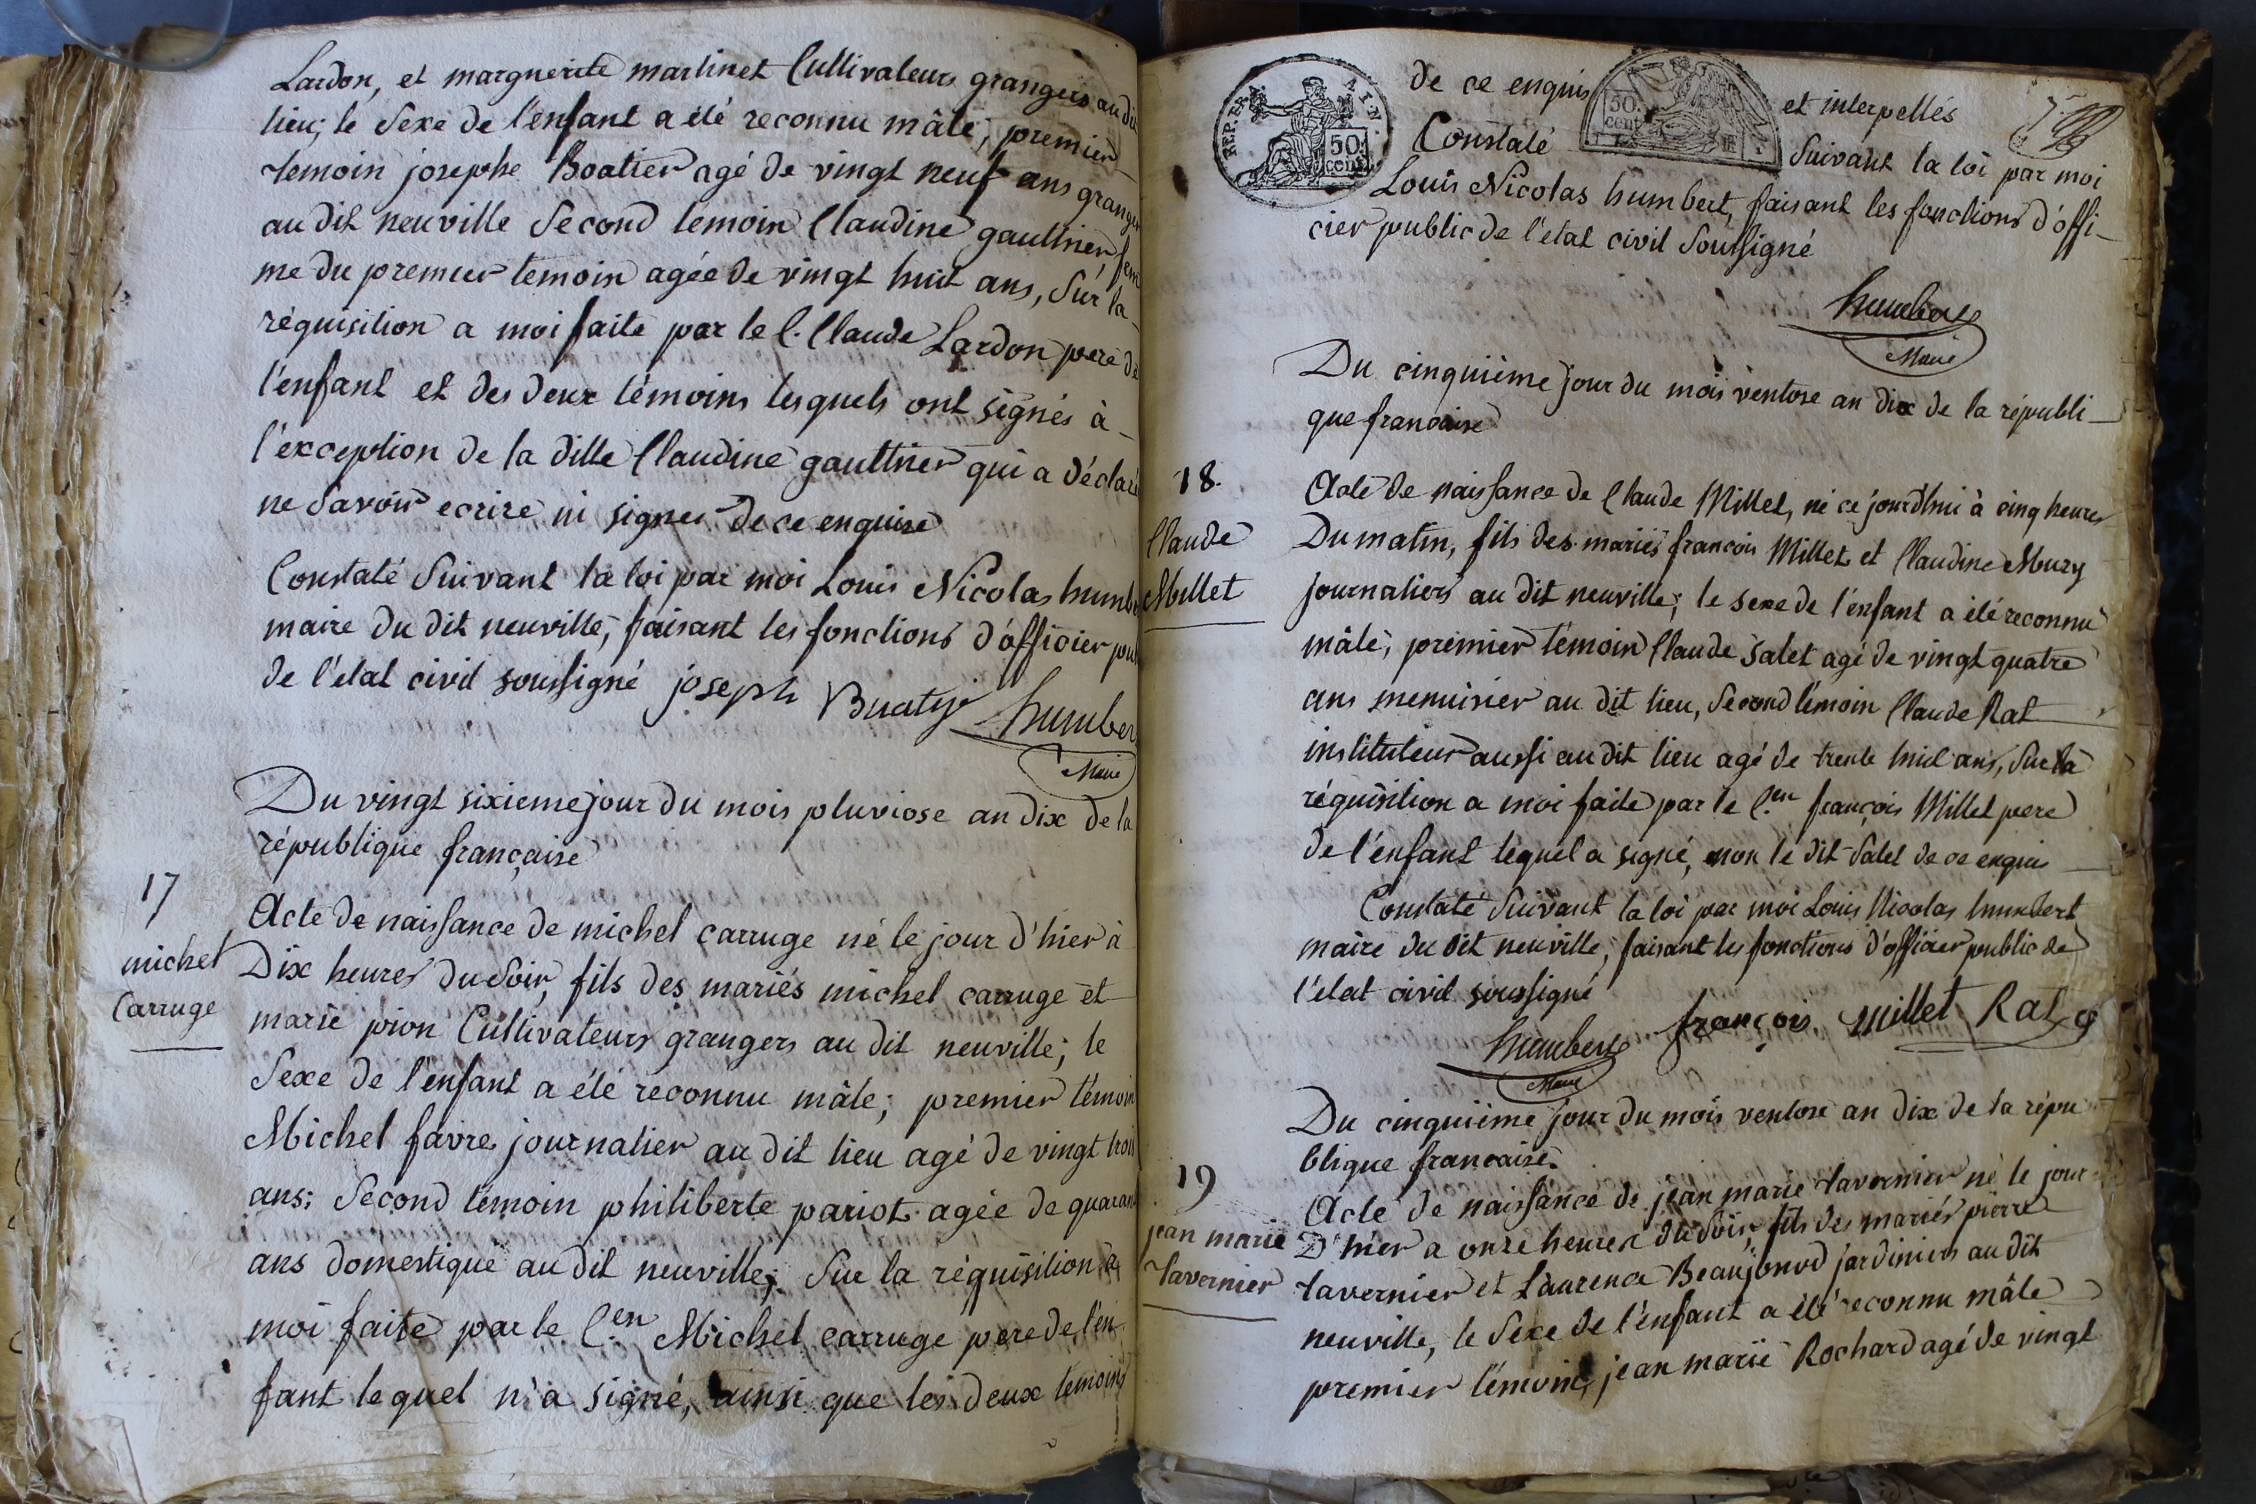 Lardon, et marguerite martinet Cultivateurs grangers au dit
lieu; le Sexe de l'enfant a été reconnu mâle, premier
temoin josephe Boatier agé de vingt neuf ans granger
au dit neuville Second temoin Claudine gaulthier fem
me du premier temoin agée de vingt huit ans, Sur la
réquisition a moi faite par le C. Claude Lardon pere de
l'enfant et des deux témoins lesquels ont signés à
l'exception de la ditte Claudine gaulthier qui a déclaré
ne Savoir ecrire ni signer de ce enquise
Constaté Suivant la loi par moi Louis Nicolas humb
maire du dit neuville, faisant les fonctions d'officier pu
de l'état civil soussigné joseph Buatye humbert
Maire
Du vingt sixieme jour du mois pluviose an dix de la
république française
17
michel
Carruge
Acte de naissance de michel carruge né le jour d'hier à
Dix heures du Soir, fils des mariés michel carruge et
marie pion Cultivateurs grangers au dit neuville; le
Sexe de l'enfant a été reconnu mâle; premier témoin
Michel favre journalier au dit lieu agé de vingt trois
ans; Second temoin philiberte pariot agée de quarant
ans domestique au dit neuville; Sur la réquisition a
moi faite par le C.en Michel carruge pere de l'en
fant lequel n'a signé, ainsi que les deux temoins
REP. FRA. AIN.
50 cent
50. cent
de ce enquis et interpellés
Constaté Suivant la loi par moi
Louis Nicolas humbert, faisant les fonctions d'offi-
cier public de l'état civil Soussigné
humbert
Maire
Du cinquième jour du mois ventose an dix de la républi-
que francaise
18.
Claude
Millet
Acte de naissance de Claude Millet, né ce jourd'hui à cinq heures
Du matin, fils des mariés françois Millet et Claudine Mury
journaliers au dit neuville; le sexe de l'enfant a été reconnu
mâle, premier témoin Claude Salet agé de vingt quatre
ans menuisier au dit lieu, Second témoin Claude Rat
instituteur aussi au dit lieu agé de trente huit ans, Sur la
réquisition a moi faite par le C.en françois Millet pere
de l'enfant lequel a signé, non le dit Salet de ce enquis
Constaté Suivant la loi par moi Louis Nicolas humbert
maire du dit neuville, faisant les fonctions d'officier public de
l'état civil soussigné
françois millet Rat
humbert
Maire
Du cinquième jour du mois ventose an dix de la répu
blique francaise.
19
jean marie
Tavernier
Acte de naissance de jean marie tavernier né le jour
D'hier a onze heures du Soir, fils des mariés pierre
tavernier et Laurence Beaujonod jardiniers au dit
neuville, le Sexe de l'enfant a été reconnu mâle
premier témoin, jean marie Rochard agé de vingt